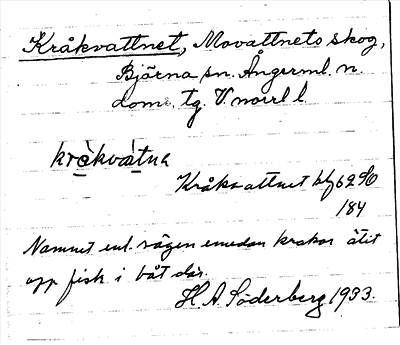 Kråkvattnet, Movattnets skog,
Björna sn. Ångerml. n.
doms. tg. V. norrl l.
kråkvatna
Kråkvattnet bl 62 96
184
Namnet enl. sägen emedan krakor ätit
upp fisk i båt där.
H A Söderberg 1933.